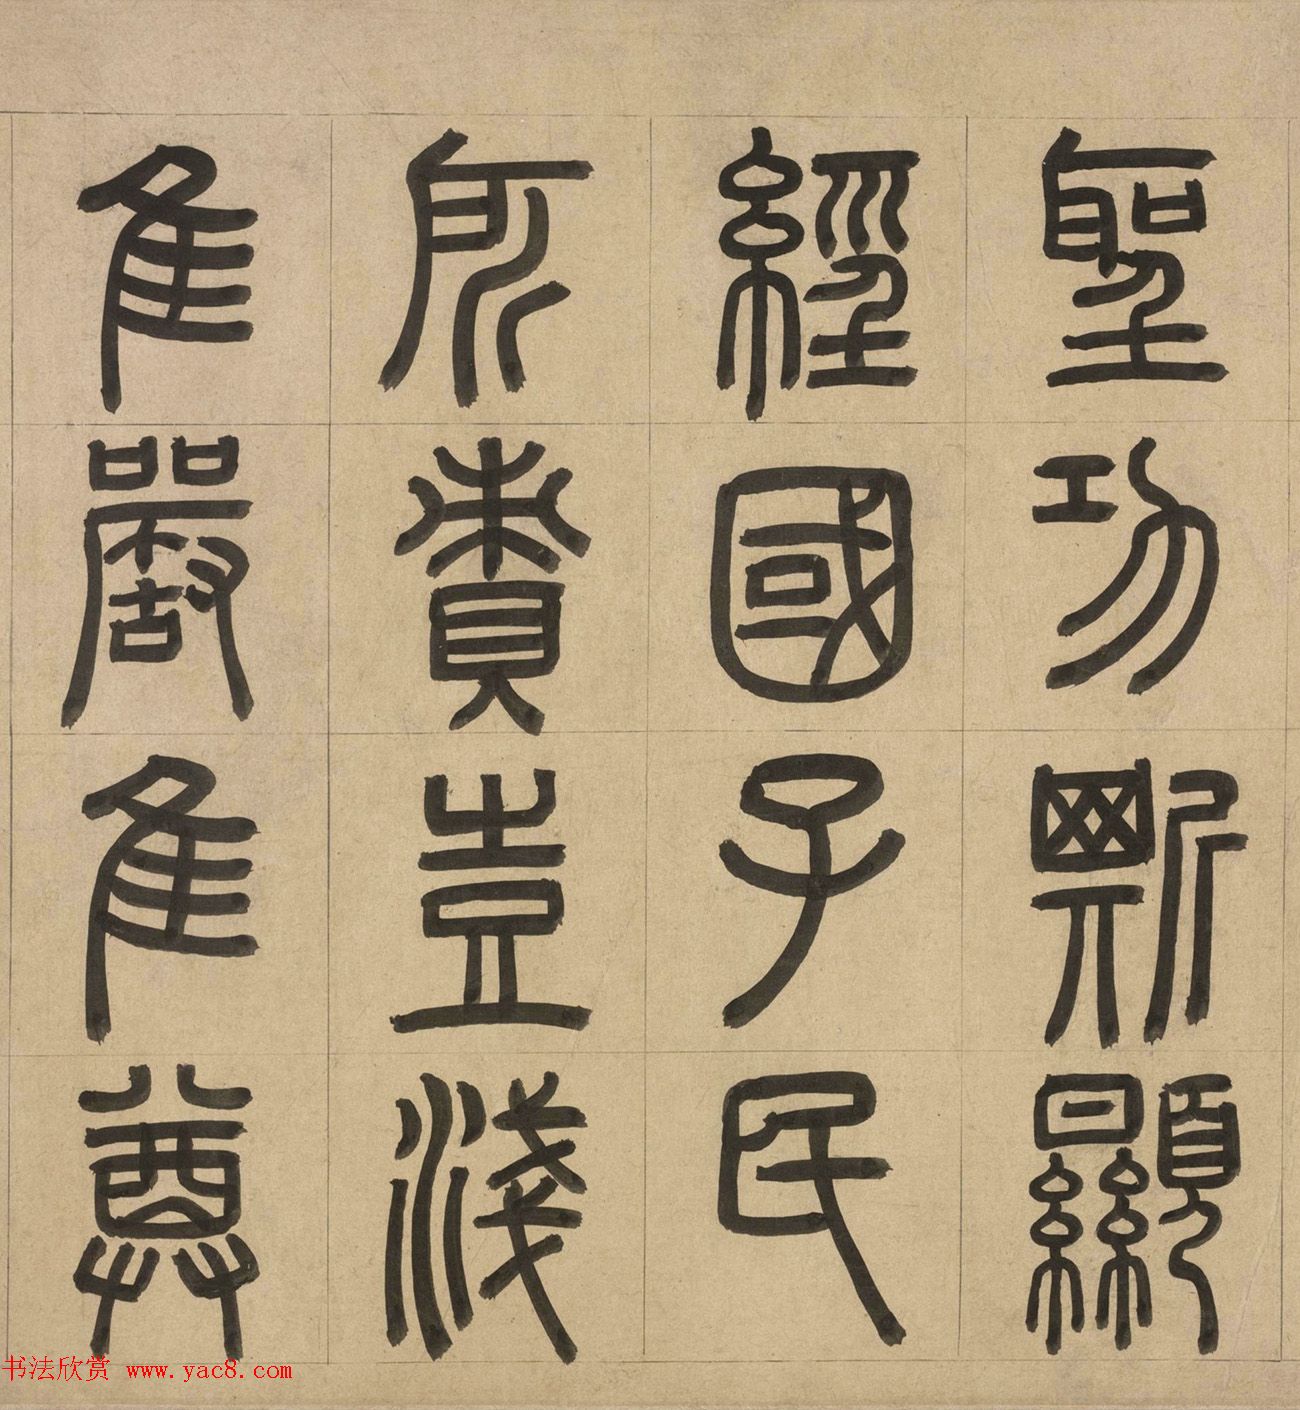 聖功斯顯
經國子民
所賚豈淺
隹嚴隹尊
书法欣赏 www.yac8.com